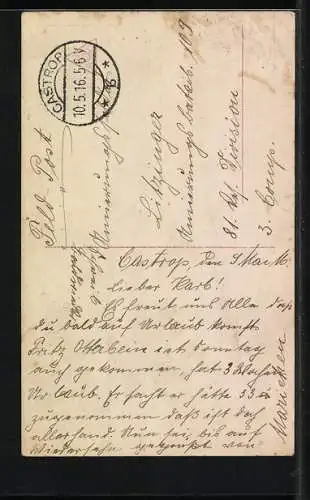 CASTROP
10.5.16.5-6 V
* b *
Feld-Post
Litzinger
81. Res. Division
3. Comp.
Castrop, den 9 Mai
Lieber Karl!
Es freut uns Alle das
du bald auf Urlaub komst
Fritz ist Sontag
auch gekommen, hat 3 Wochen
Urlaub. Er sacht er hätte 33
zugenommen daß ist doch
allerhand. Nun sei bis auf
Wiedersehn gegrüßt von
Mariechen